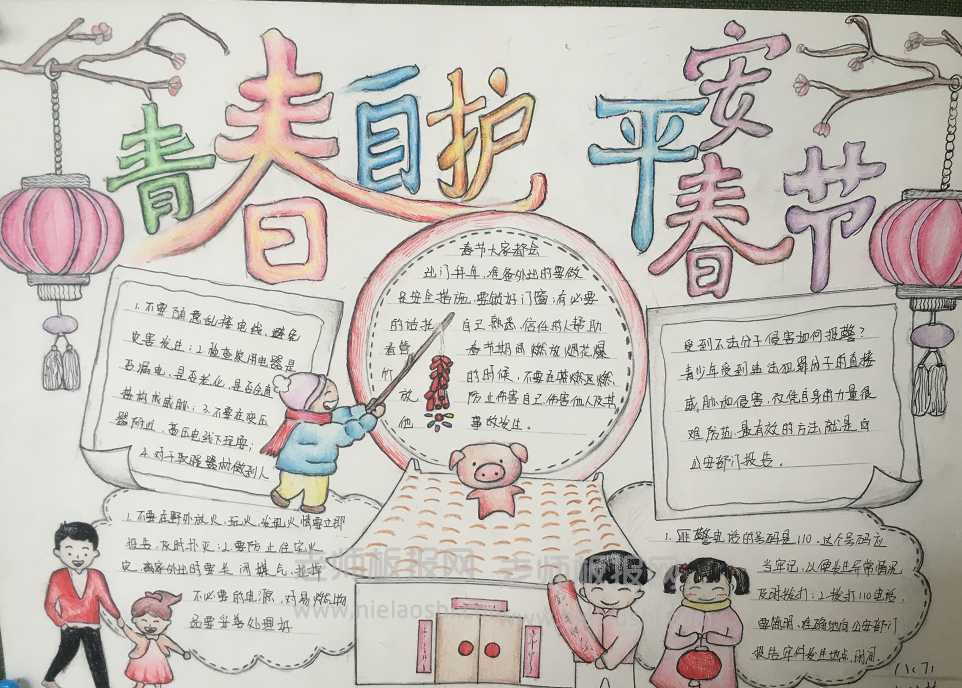 青春自护 平安春节
春节大家都会
出门井车,准备外出时要做
足安全措施,要锁好门窗;有必要
的话托 自己熟悉、信任的人帮助
看管 春节期间燃放烟花爆
竹 的时候,不要在禁燃区燃
放 防止伤害自己,伤害他人及其
他 事故发生.
1.不要随意乱接电线,避免
灾害发生;2.检查家用电器是
否漏电,是否老化,是否会有
其构成威胁;3.不要在变压
器附近、高压电线下玩耍;
4.对于取暖器材做到人
受到不法分子侵害如何报警?
青少年受到违法犯罪分子的直接
威胁和侵害,仅凭自身的力量很
难防范,最有效的方法就是向
公安部门报告.
1.不要在野外放火、玩火,发现火情要立即
报告,及时扑灭;2.要防止住宅火
灾,离家外出时要关闭煤气,拔掉
不必要的电源,对易燃物
品要妥善处理好
1.匪警电话的号码是110,这个号码应
当牢记,以便发生异常情况
及时拨打;2.拨打110电话,
要简明、准确地向公安部门
报告案件发生地点、时间.
老师板报网 老师板报网
www.nielaoshi